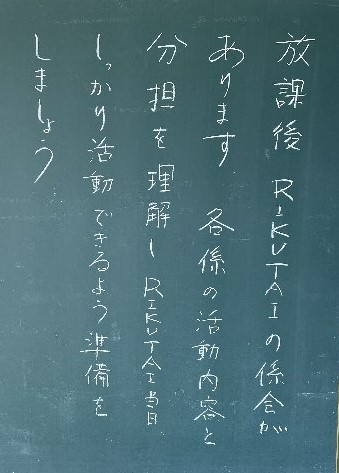 放課後 RiKUTAIの係会が
あります 各係の活動内容と
分担を理解しRiKUTAI当日
しっかり活動できるよう準備を
しましょう